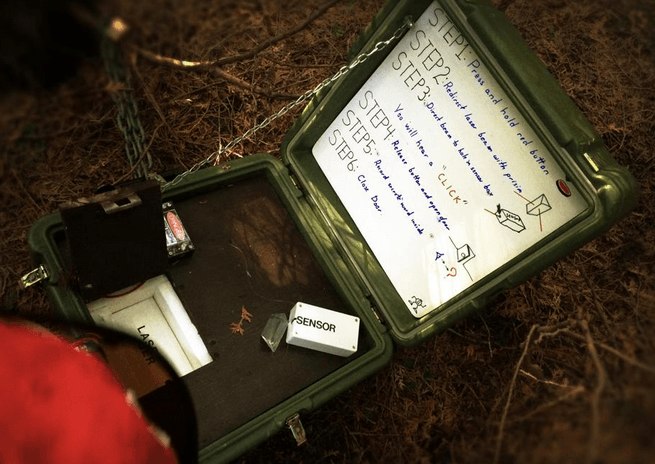 STEP1: Press and hold red button
STEP2: Redirect laser beam with prism
STEP3: Direct beam to hole in sensor box
You will hear a "CLICK"
STEP4: Release button and open door
STEP5: Record secret word inside
STEP6: Close Door.
LASER
SENSOR